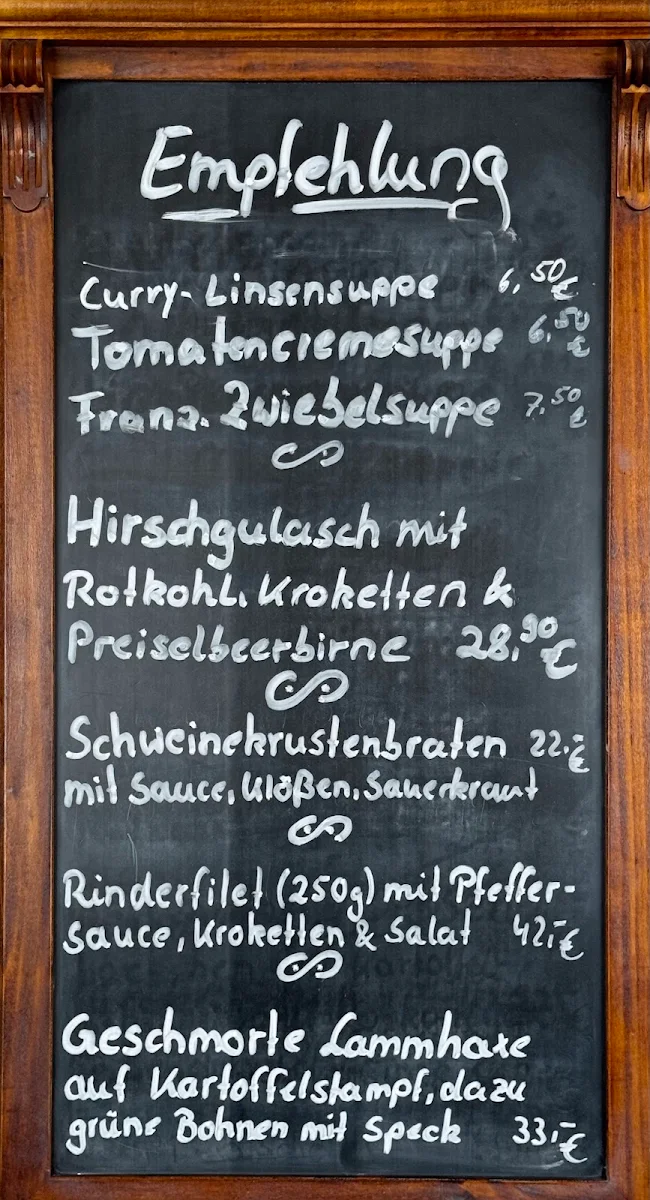 Empfehlung
Curry-Linsensuppe 6,50€
Tomatencremesuppe 6,50€
Franz. Zwiebelsuppe 7,50€
Hirschgulasch mit
Rotkohl, Kroketten &
Preiselbeerbirne 28,90€
Schweinekrustenbraten 22,-€
mit Sauce, Klößen, Sauerkraut
Rinderfilet (250g) mit Pfeffer-
sauce, Kroketten & Salat 42,-€
Geschmorte Lammhaxe
auf Kartoffelstampf, dazu
grüne Bohnen mit Speck 33,-€